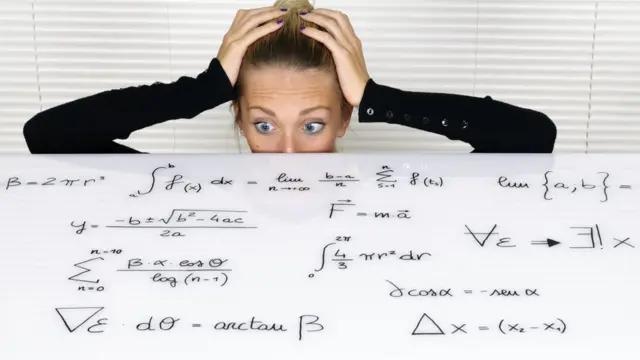 β = 2πr² ∫_a^b f(x) dx = lim_{n→+∞} (b-a)/n ∑_{s=1}^{n} f(t_s) lim {a, b} =
y = (-b ± √(b² - 4ac))/2a F⃗ = m·a⃗
∀ε ⇒ ∃! x
∑_{n=0}^{n=10} (β·α·cos θ)/(log (n-1)) ∫_0^{2π} 4/3 πr² dr
∂cos α = -sen α
∇ε · dθ = arctan β Δx = (x₂ - x₁)